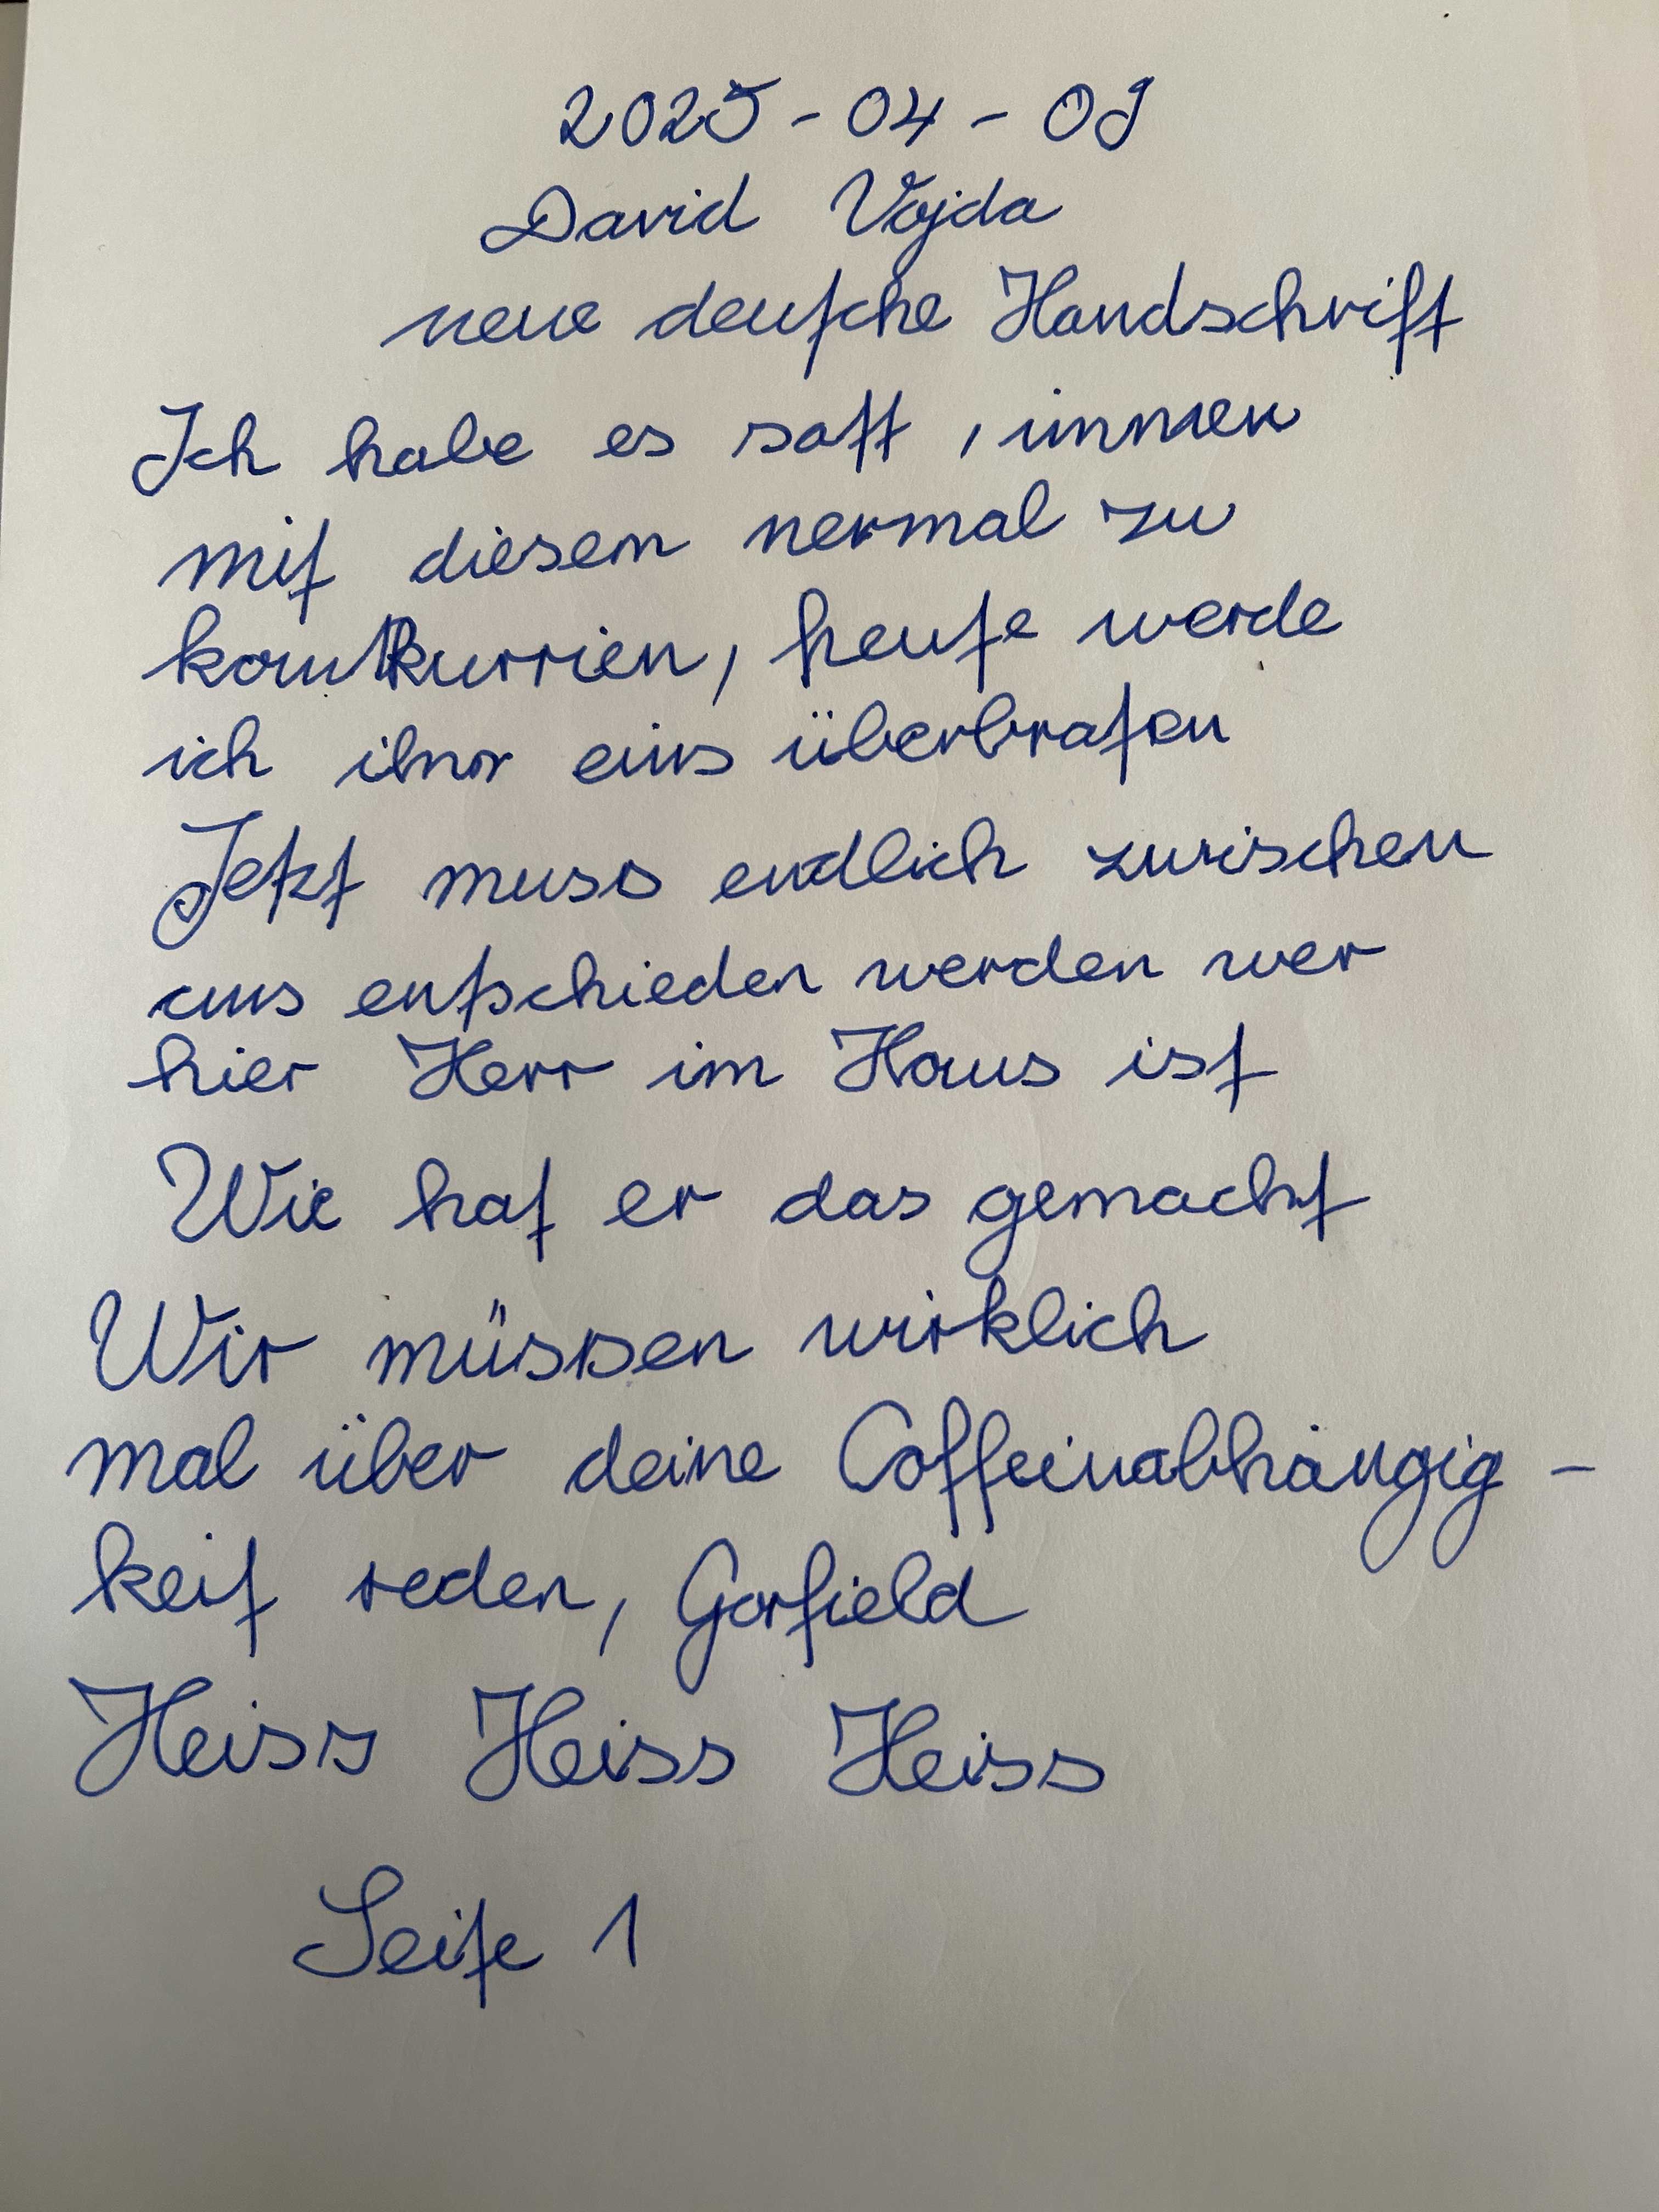 2025-04-09
David Vajda
neue deutsche Handschrift
Ich habe es satt, immer
mit diesem nermal zu
konkurrien, heute werde
ich ihm eins überbraten
Jetzt muss endlich zwischen
uns entschieden werden wer
hier Herr im Haus ist
Wie hat er das gemacht
Wir müssen wirklich
mal über deine Coffeinabhängig-
keit reden, Garfield
Heiss Heiss Heiss
Seite 1